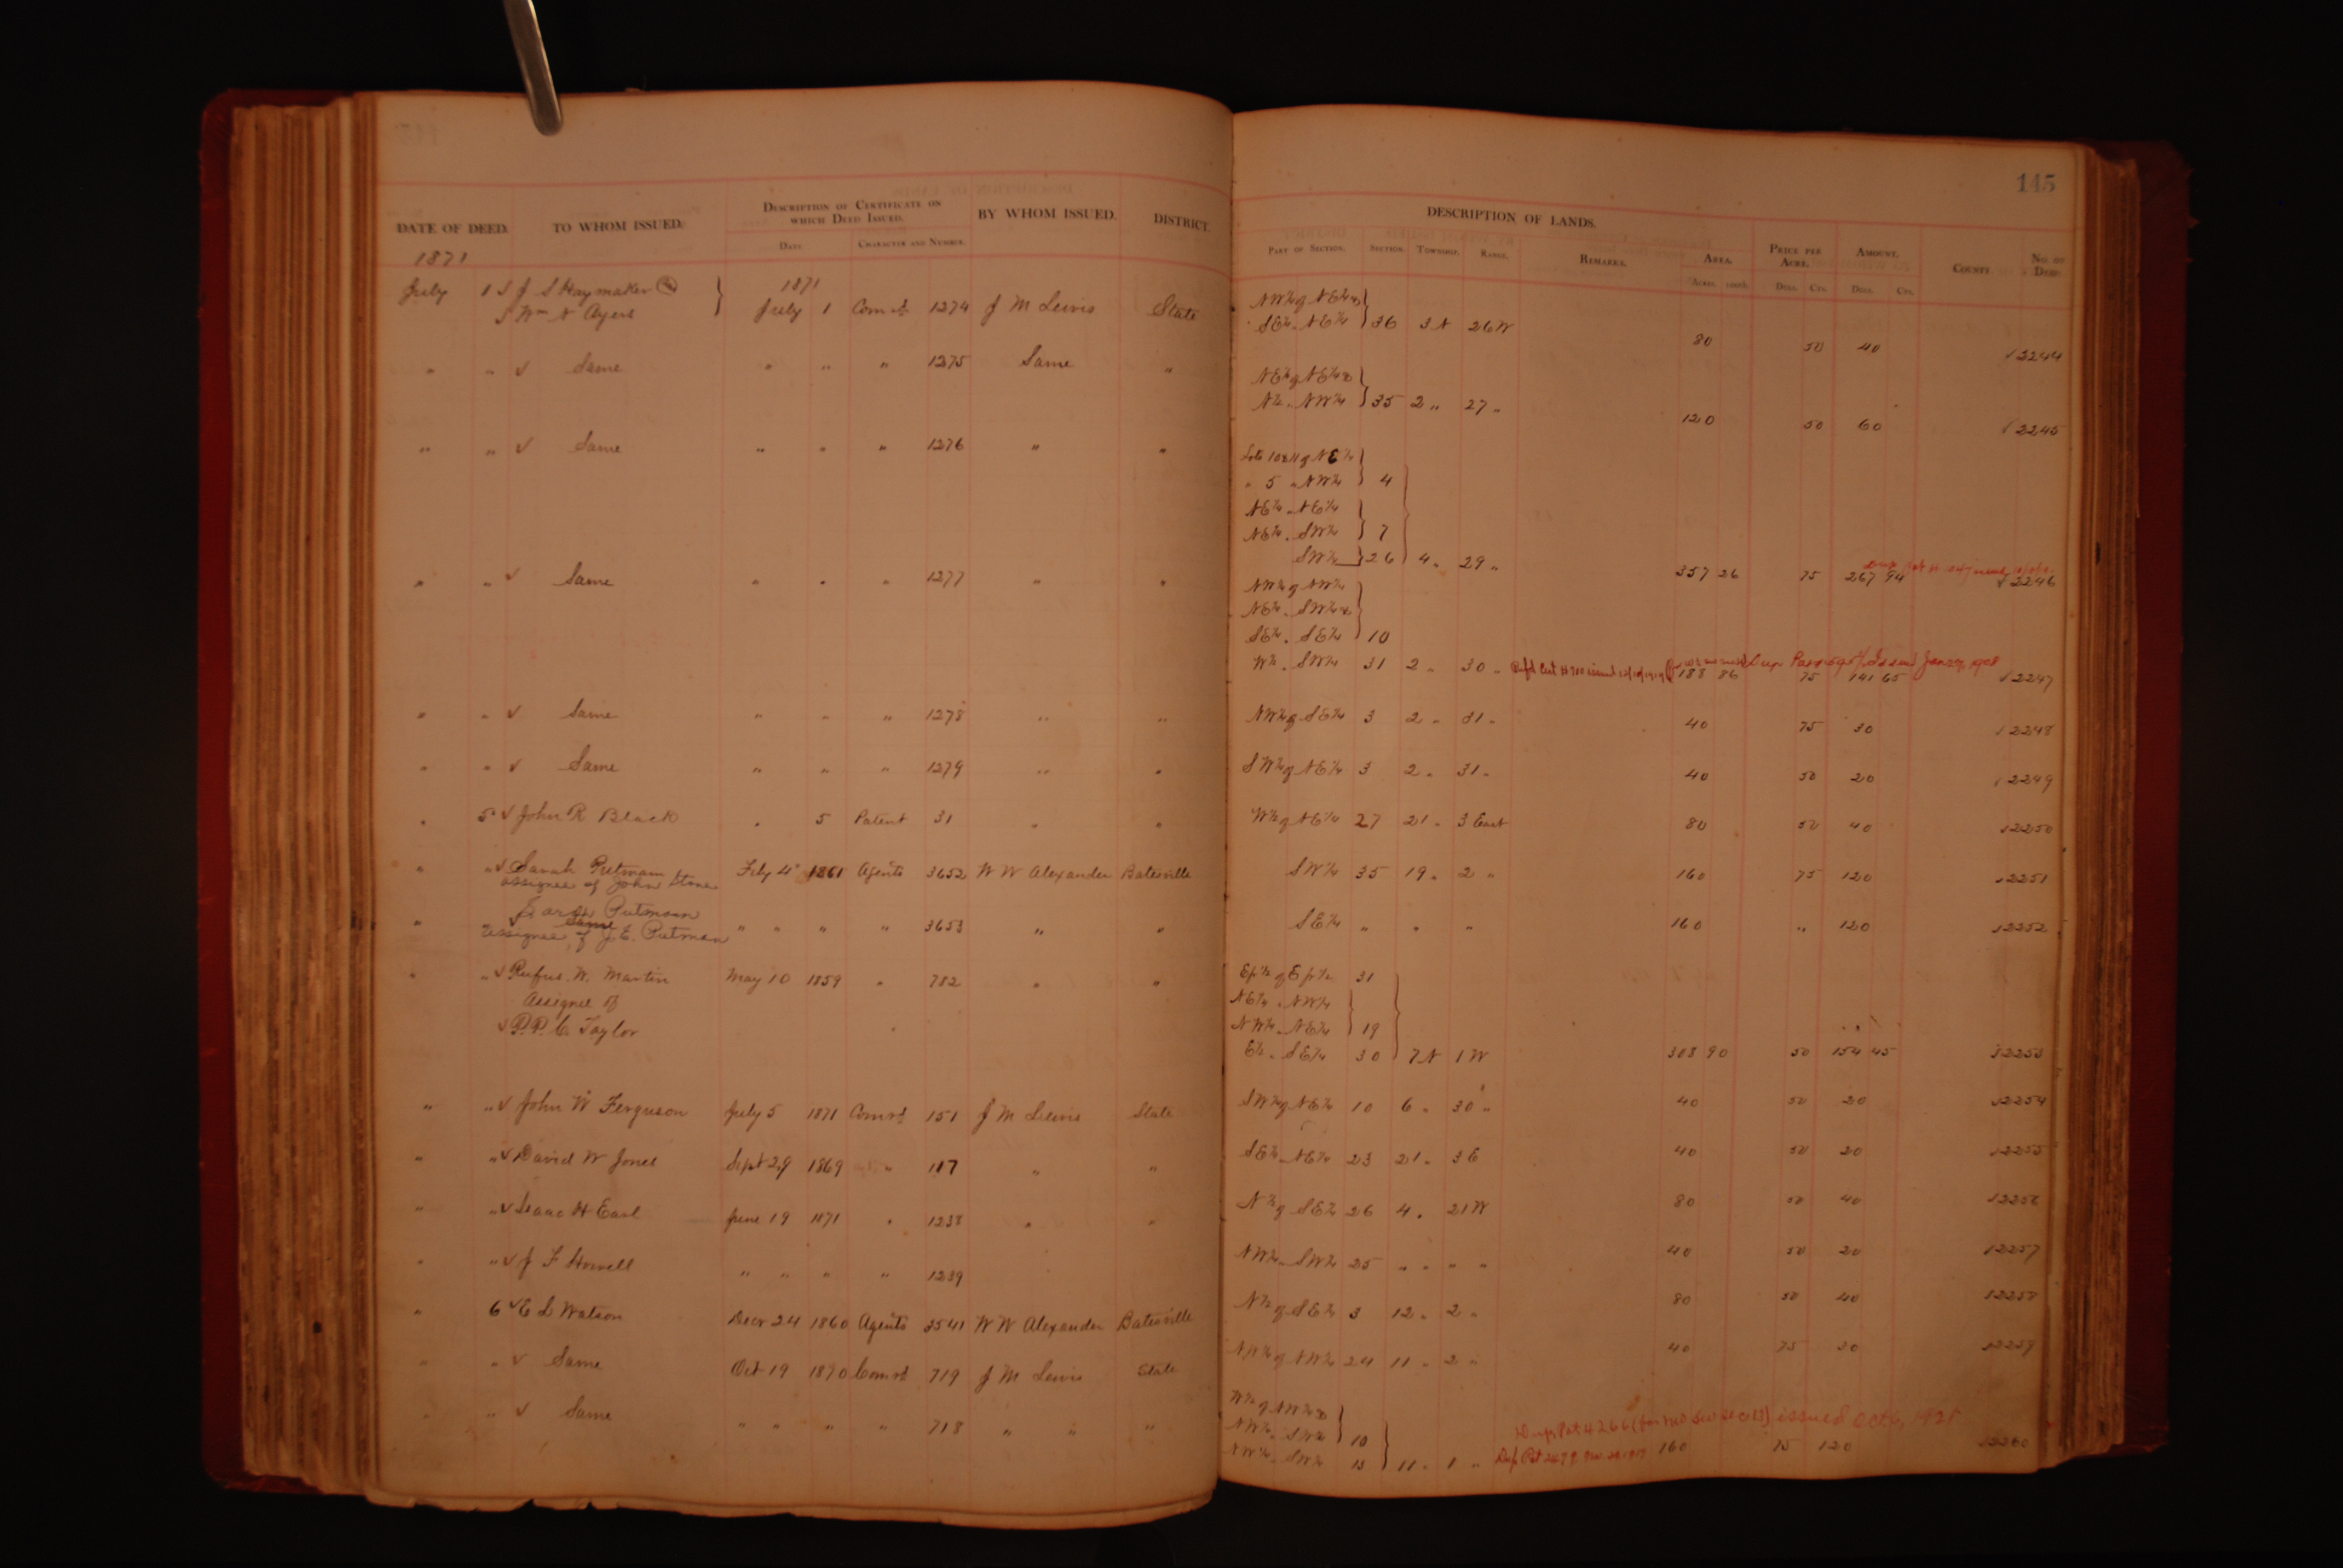 145
DATE OF DEED. TO WHOM ISSUED. DESCRIPTION OF CERTIFICATE ON WHICH DEED ISSUED. BY WHOM ISSUED. DISTRICT. DESCRIPTION OF LANDS.
DATE CHARACTER AND NUMBER. PART OF SECTION. SECTION. TOWNSHIP. RANGE. REMARKS. AREA. PRICE PER ACRE. AMOUNT. COUNTY NO. OF DEED.
ACRES. 100ths. DOLS. CTS. DOLS. CTS.
1871
July 1 J S Haymaker & 1871 NW¼ of NE¼ &
Wm N Ayers July 1 Com rs 1274 J M Lewis State SE¼ „ NE¼ 36 3 N 26 W 80 50 40 2244
" " √ Same " " " 1275 Same " NE¼ of NE¼ &
N½ „ NW¼ 35 2 " 27 " 120 50 60 2245
" " √ Same " " " 1276 " " Lots 10 & 11 of NE¼
" 5 " NW¼ 4
NE¼ „ NE¼
NE¼ „ SW¼ 7
SW¼ 26 4 " 29 " 357 26 75 267 94 2246
" " √ Same " " " 1277 " " NW¼ of NW¼
NE¼ „ SW¼ &
SE¼ „ SE¼ 10
W½ „ SW¼ 31 2 " 30 " 188 86 75 141 65 2247
Issued Jan 1908
" " √ Same " " " 1278 " " NW¼ of SE¼ 3 2 " 31 " 40 75 30 2248
" " √ Same " " " 1279 " " SW¼ of NE¼ 3 2 " 31 " 40 50 20 2249
" 5 √ John R Black " 5 Patent 31 " " W½ of NE¼ 27 21 " 3 East 80 50 40 2250
" " √ Sarah Putmam Feby 4 1861 Agents 3652 W W Alexander Batesville SW¼ 35 19 " 2 " 160 75 120 2251
assignee of John
" Sarah Putmam
Same " " " " 3653 " " SE¼ " " " 160 " 120 2252
assignee of J. E. Putman
" " √ Rufus W. Martin May 10 1859 " 782 " " E fr ½ of E fr ½ 31
Assignee of NE¼ „ NW¼
√ P.P. C. Taylor NW¼ „ NE¼ 19
E½ „ SE¼ 30 7 N 1 W 308 90 50 154 45 2253
" " √ John W Ferguson July 5 1871 Com rs 151 J M Lewis State SW¼ of NE¼ 10 6 " 30 " 40 50 20 2254
" " √ David W Jones Sept 29 1869 " 117 " " SE¼ „ NE¼ 23 21 " 3 E 40 50 20 2255
" " √ Isaac H Earl June 19 1871 " 1238 " " N½ of SE¼ 26 4 " 21 W 80 50 40 2256
" " √ J F Howell " " " " 1239 NW¼ „ SW¼ 25 " " " " 40 50 20 2257
" 6 √ E L Watson Decr 24 1860 Agents 3541 W W Alexander Batesville N½ of SE¼ 3 12 " 2 " 80 50 40 2258
" " √ Same Oct 19 1870 Com rs 719 J M Lewis State NW¼ of NW¼ 24 11 " 2 " 40 75 30 2259
" " √ Same " " " " 718 " " " W½ of NW¼ &
NW¼ „ SW¼ 10 issued Oct
NW¼ „ SW¼ 13 11 " 1 " Dup Pat 160 75 120 2260